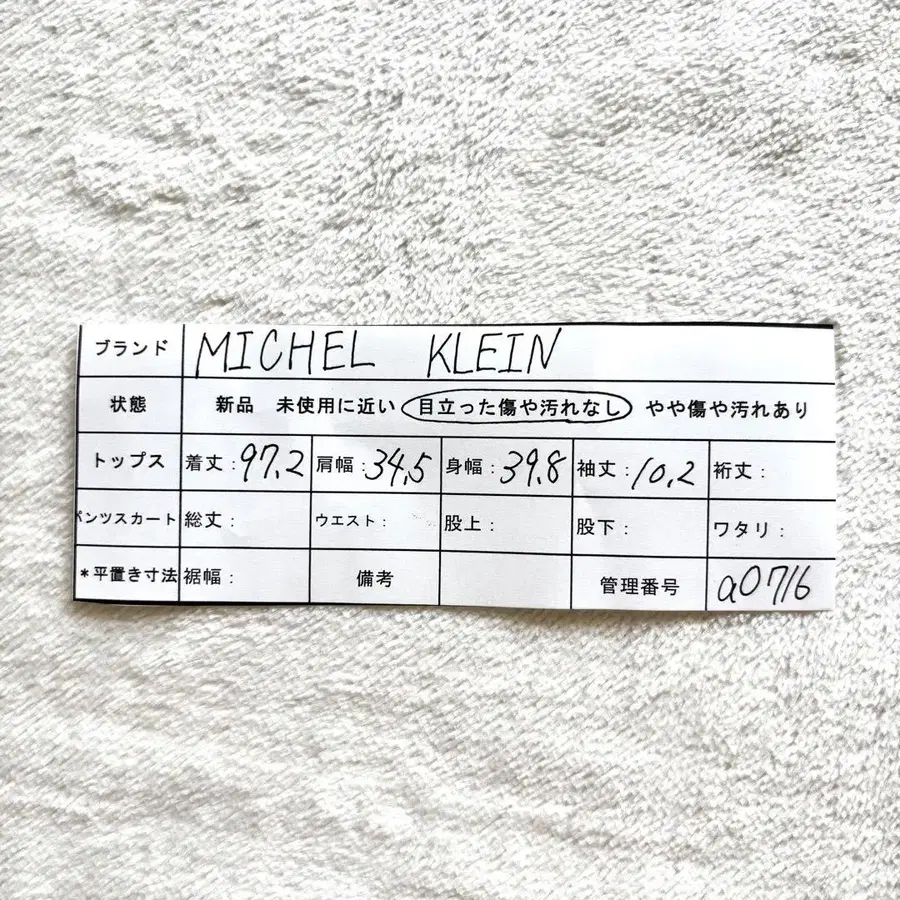 ブランド MICHEL KLEIN
状態 新品 未使用に近い 目立った傷や汚れなし やや傷や汚れあり
トップス 着丈:97.2 肩幅:34.5 身幅:39.8 袖丈:10.2 裄丈:
パンツスカート 総丈: ウエスト: 股上: 股下: ワタリ:
*平置き寸法 裾幅: 備考 管理番号 a0716